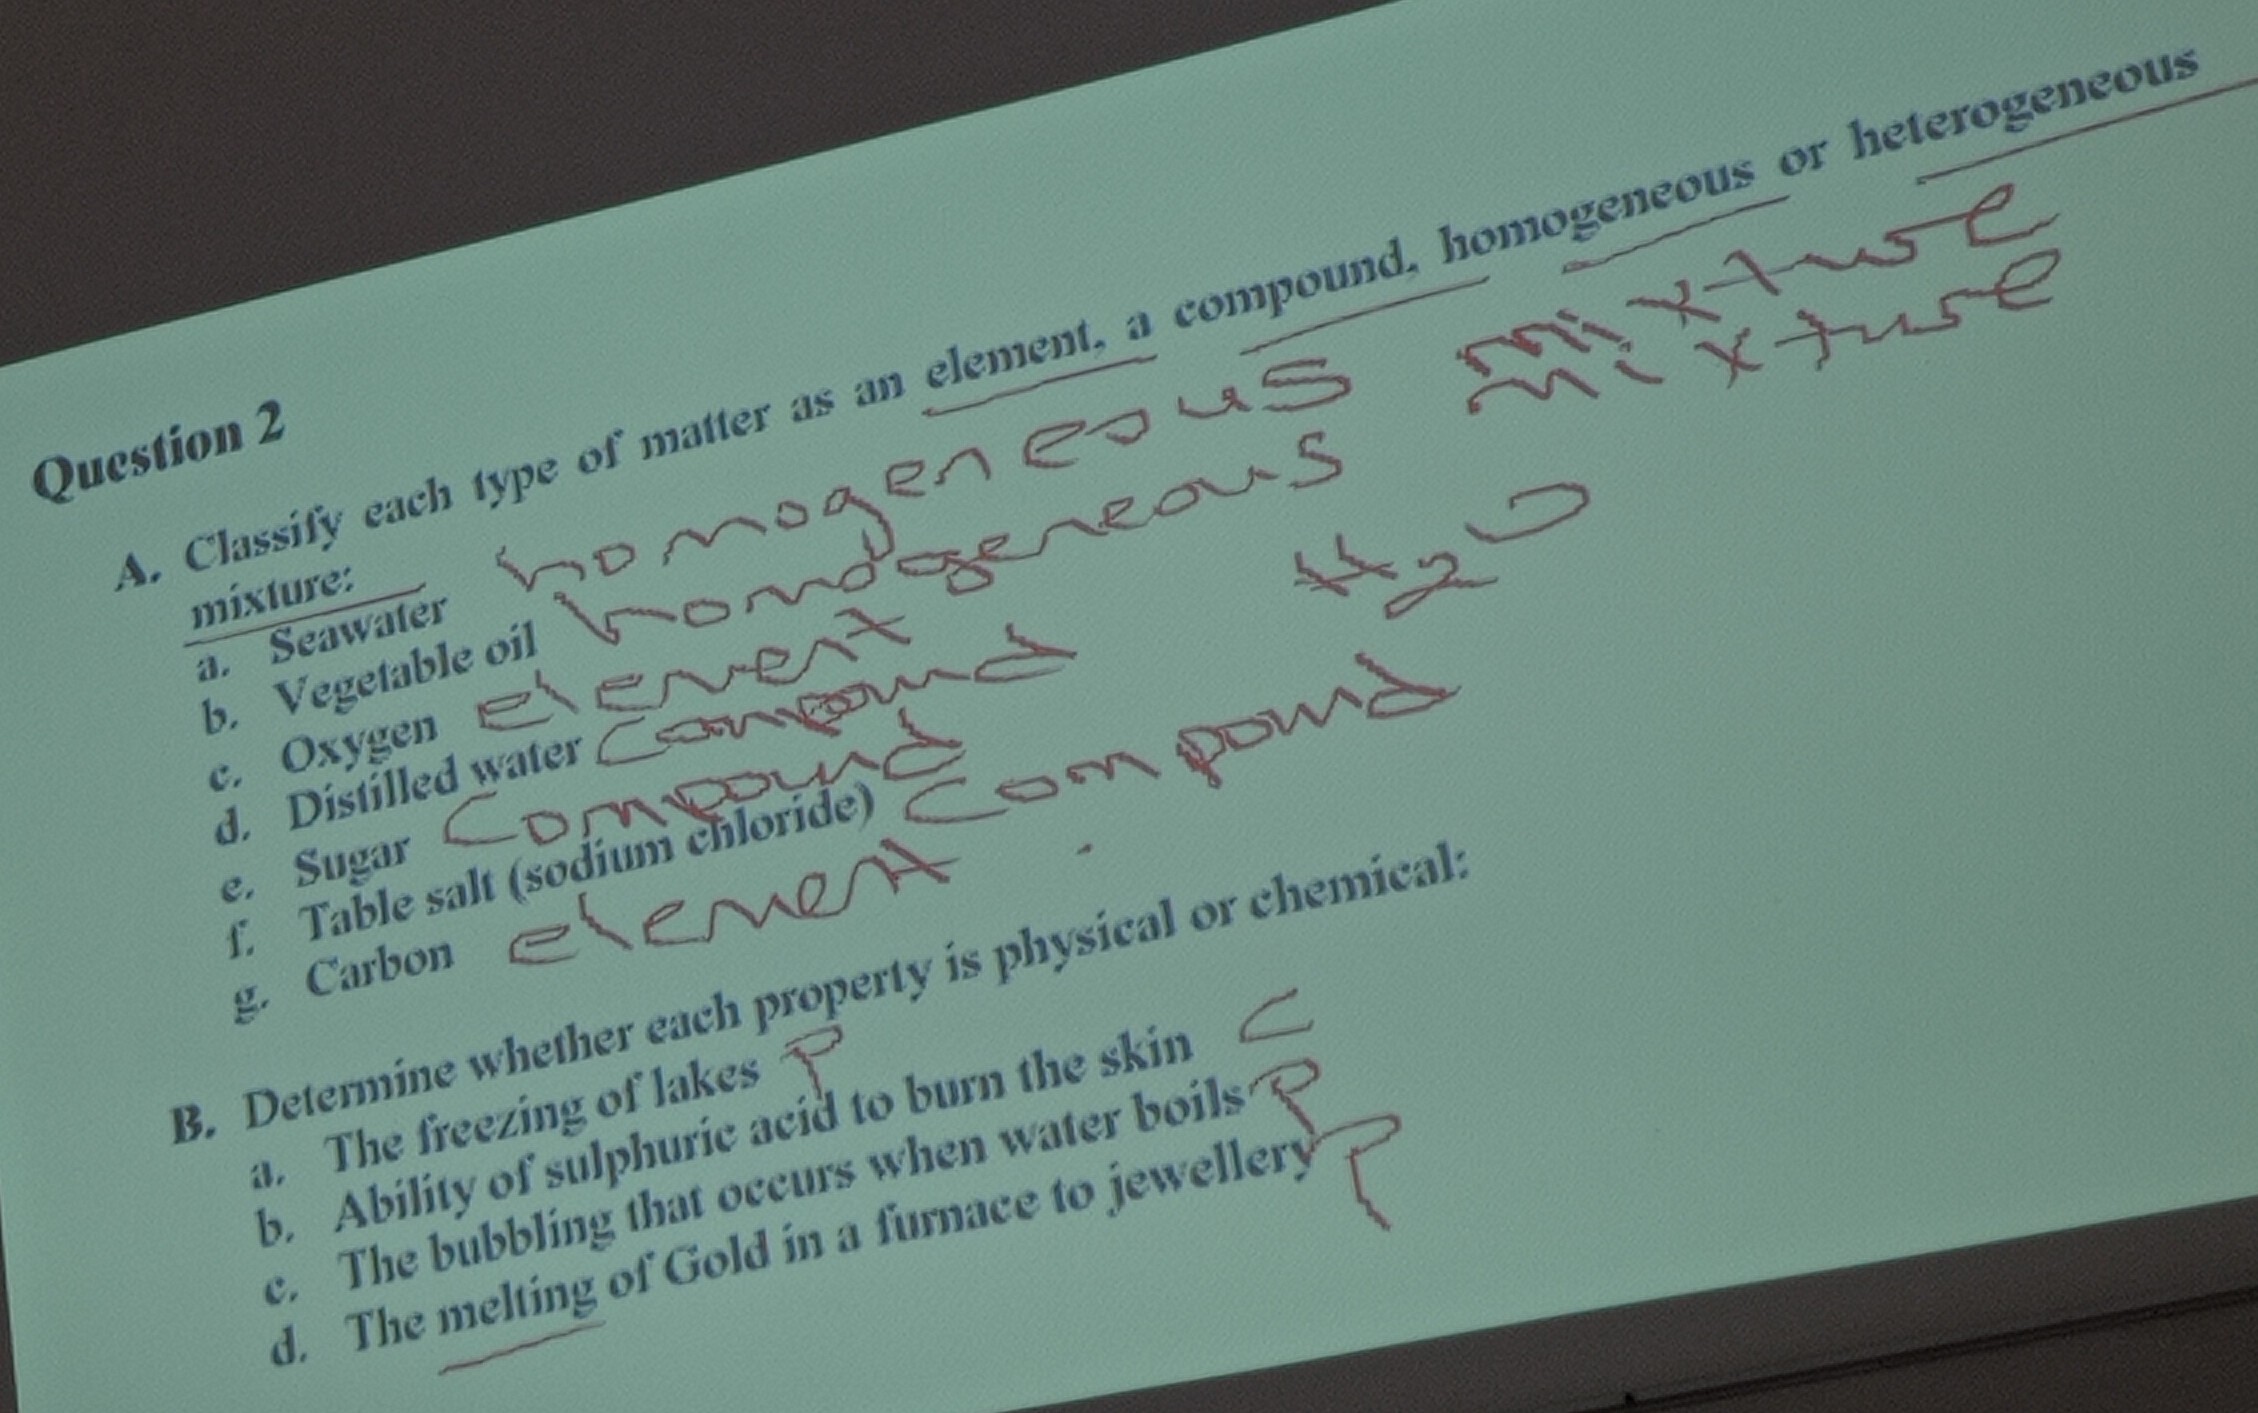 Question 2
A. Classify each type of matter as an element, a compound, homogeneous or heterogeneous
mixture:
a. Seawater homogeneous mixture
b. Vegetable oil homogeneous mixture
c. Oxygen element
d. Distilled water compound H2O
e. Sugar compound
f. Table salt (sodium chloride) compound
g. Carbon element
B. Determine whether each property is physical or chemical:
a. The freezing of lakes P
b. Ability of sulphuric acid to burn the skin C
c. The bubbling that occurs when water boils P
d. The melting of Gold in a furnace to jewellery P